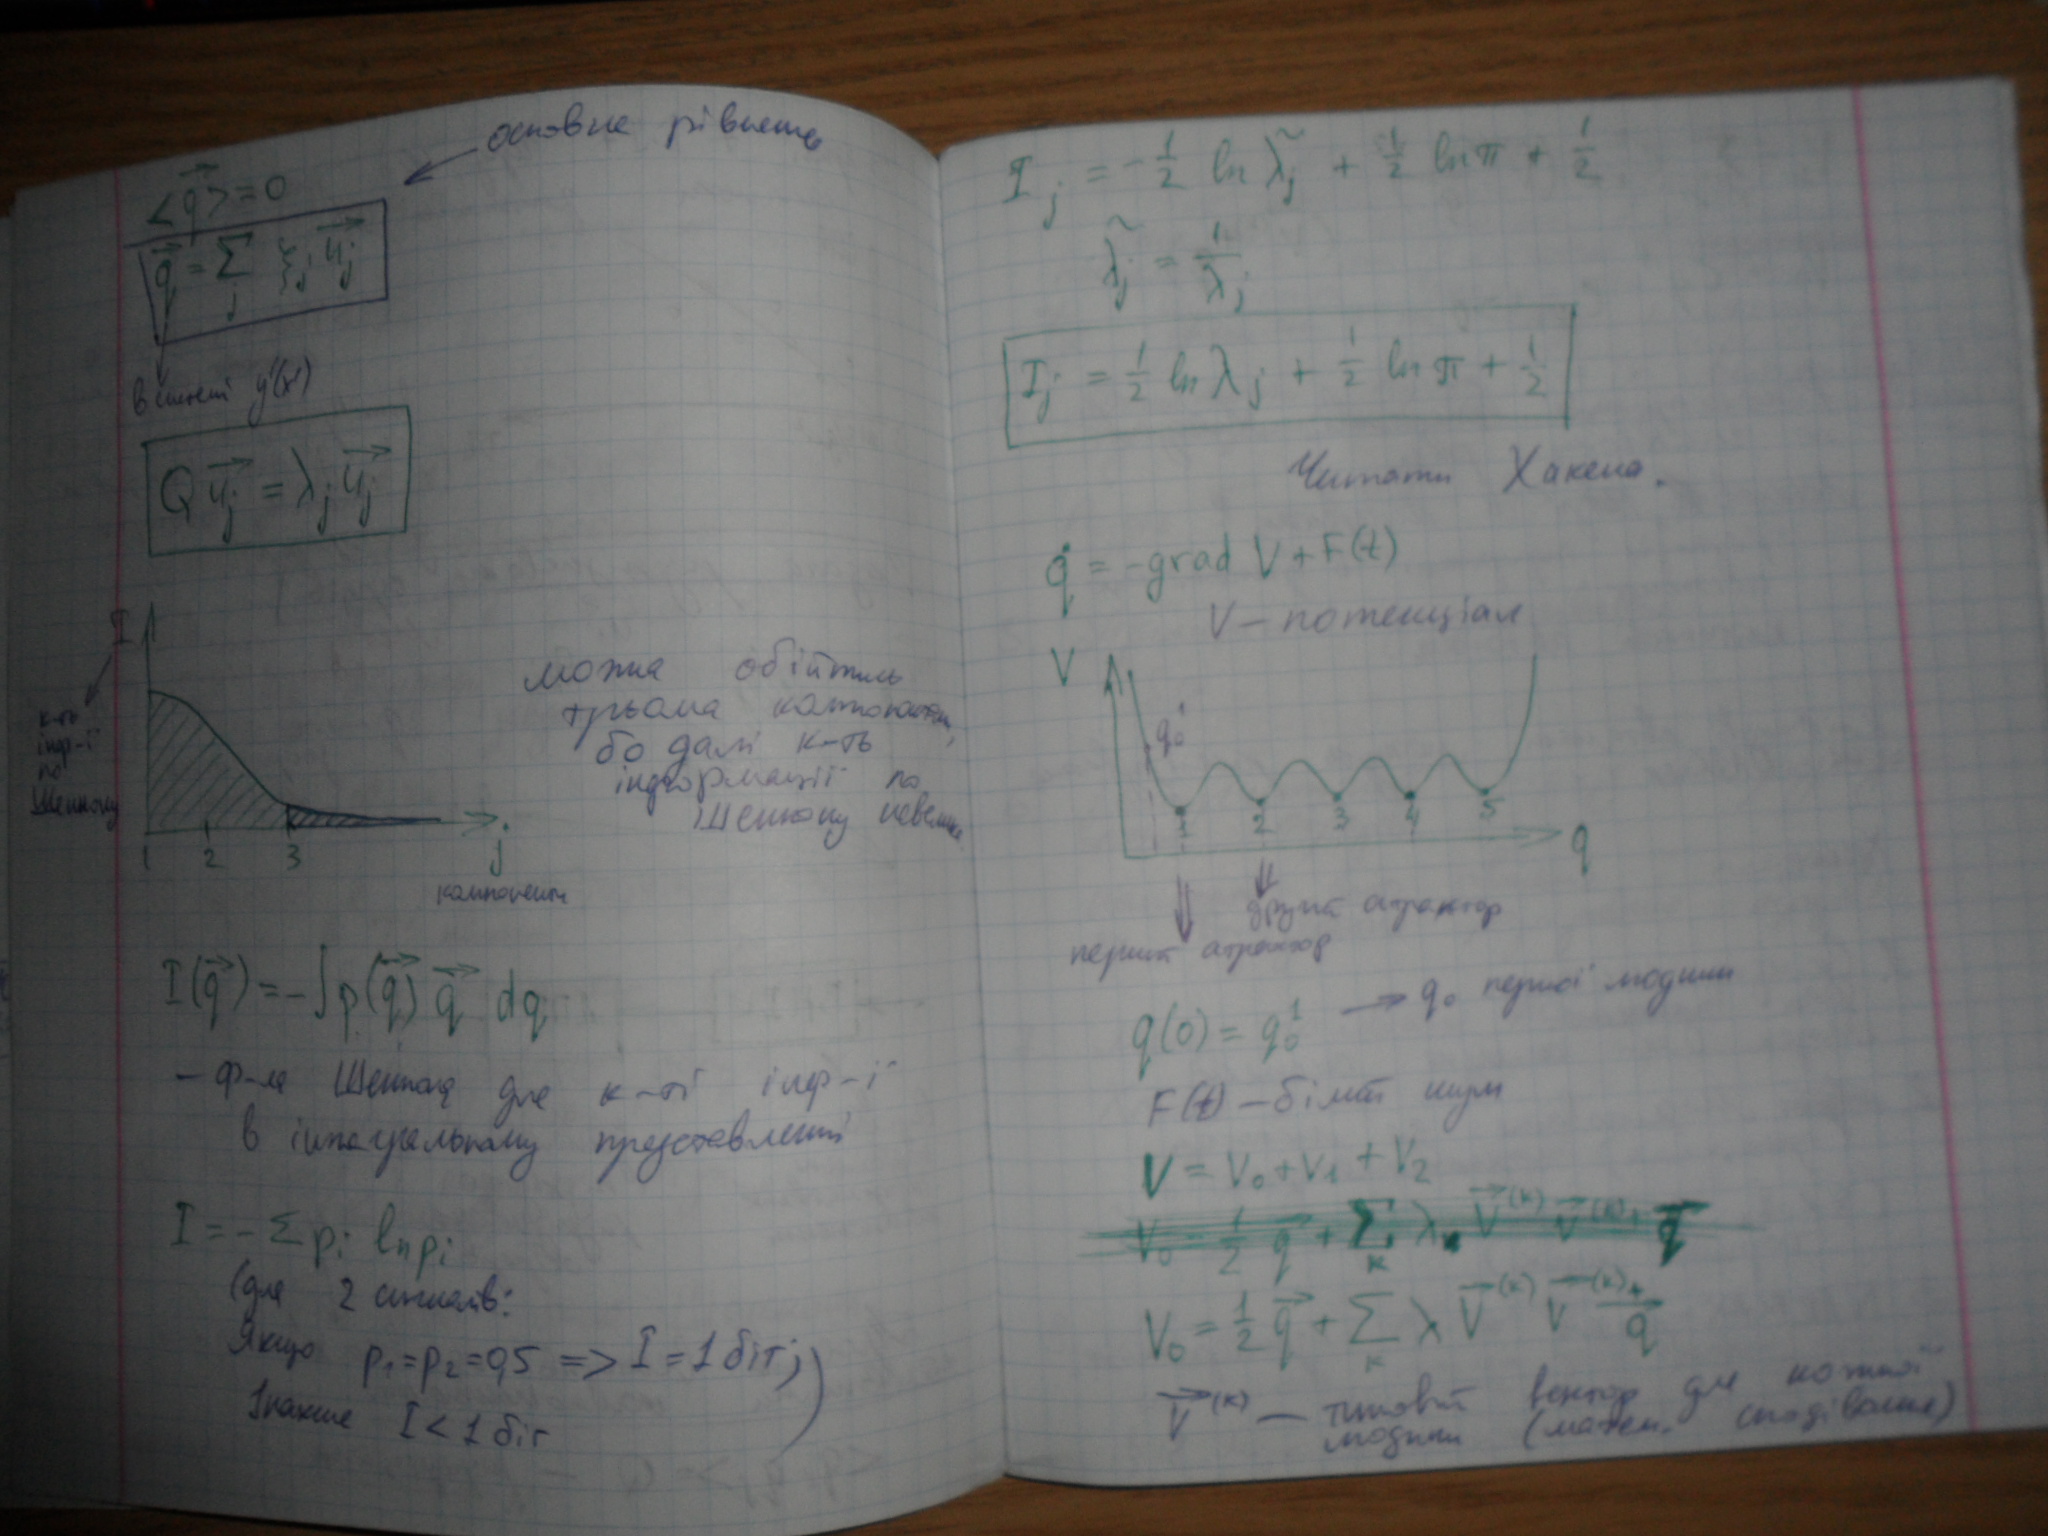 основне рівнян
<q⃗> = 0
q⃗ = Σ_j ξ_j u⃗_j
y'(x')
Q u⃗_j = λ_j u⃗_j
I
к-ть
інф-ї
по
Шеннону
1 2 3 j
компоненти
можна обійтись
трьома компонентами,
бо далі к-ть
інформації по
Шеннону невелика
I(q⃗) = -∫p(q⃗) q⃗ dq
- ф-ла Шеннона для к-ті інф-ї
в інтегральному представленні
I = -Σ p_i ln p_i
(для 2 сигналів:
Якщо p₁=p₂=0,5 => I = 1 біт;
Інакше I < 1 біт)
I_j = -1/2 ln λ̃_j + 1/2 ln π + 1/2
λ̃_j = 1/λ_j
I_j = 1/2 ln λ_j + 1/2 ln π + 1/2
Читати Хакена.
q̇ = -grad V + F(t)
V - потенціал
V
q₀¹
1 2 3 4 5
q
другий атрактор
перший атрактор
q(0) = q₀¹ → q₀ першої людини
F(t) - білий шум
V = V₀ + V₁ + V₂
V₀ = 1/2 q⃗ + Σ_k λ_k V⃗^(k) V⃗^(k)+ q⃗
V₀ = 1/2 q⃗ + Σ_k λ V⃗^(k) V⃗^(k)+ q⃗
V⃗^(k) - типовий вектор для кожної
людини (матем. сподівання)